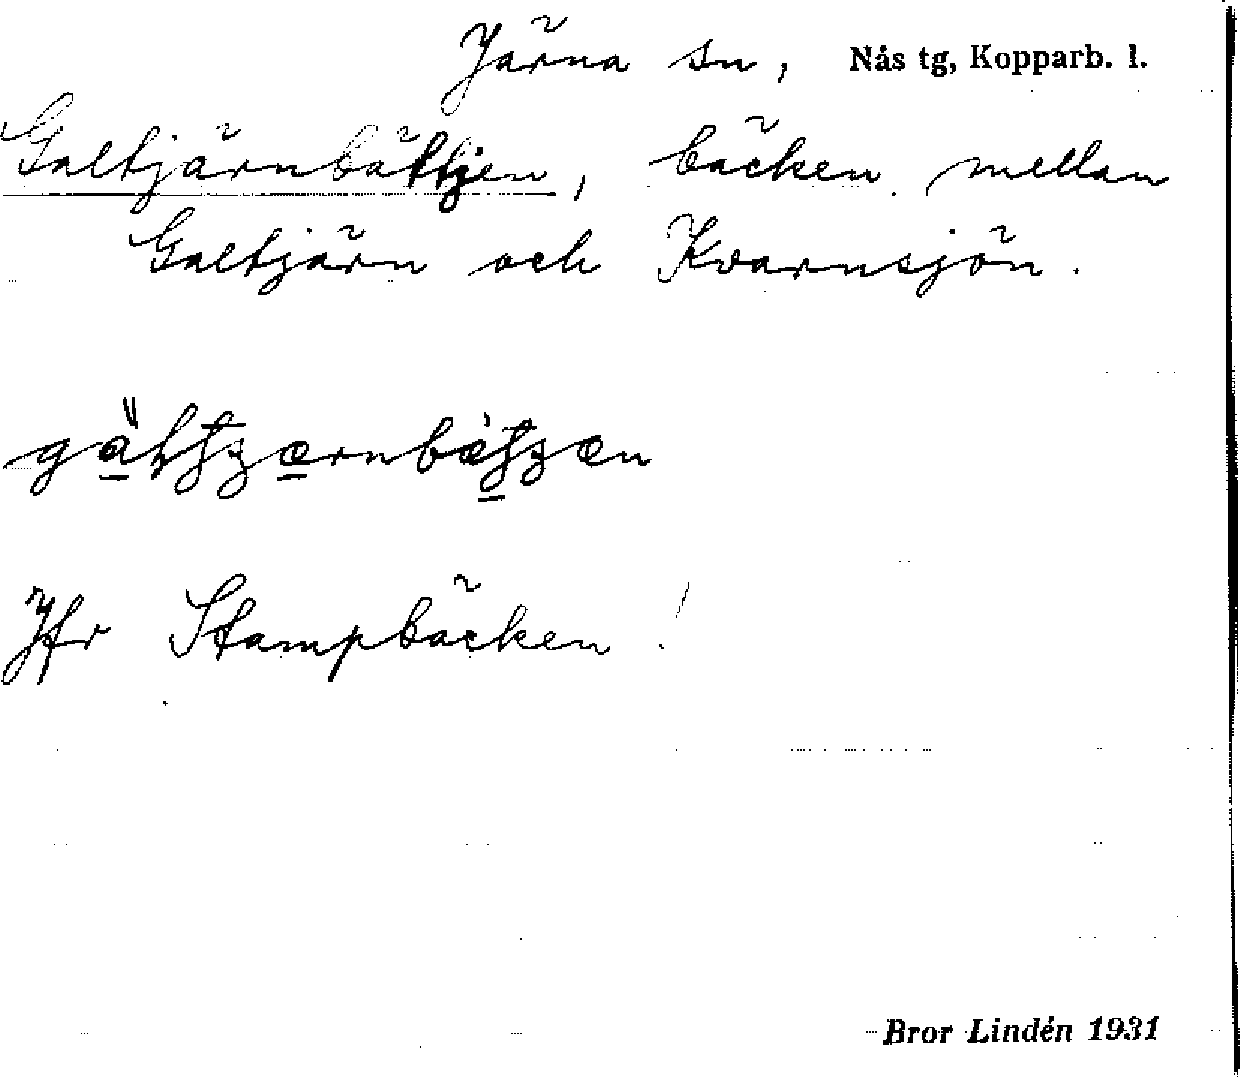 Järna sn, Nås tg, Kopparb. l.
Galtjärnbättjen, bäcken mellan
Galtjärn och Kvarnsjön.
Jfr Stampbäcken!
Bror Lindén 1931